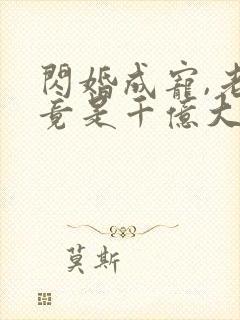 閃婚成寵,老
竟是千億大
莫斯